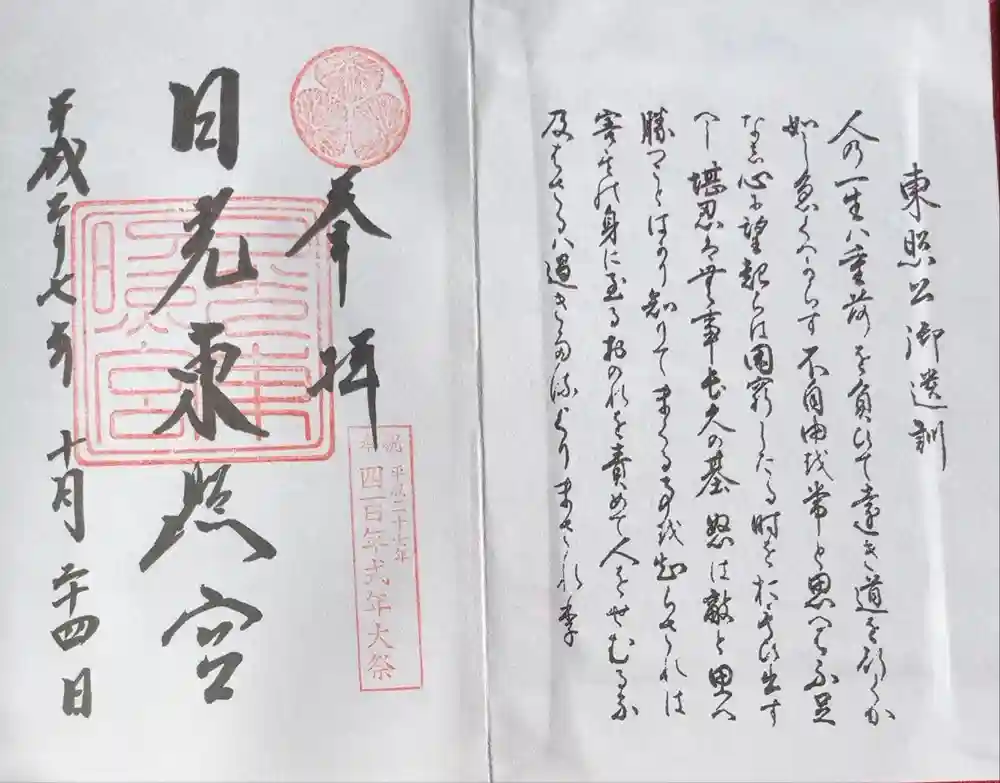 東照公御遺訓
人の一生ハ重荷を負ひて遠き道を行くか
如し急くへからす不自由を常と思へは不足
なし心に望起らは困窮したる時をおもひ出す
へし堪忍は無事長久の基怒は敵と思へ
勝つことはかり知りてまくる事を知らされは
害其の身に至るおのれを責めて人をせむるな
及はさるハ過きたるよりまされり
奉拝
平成二十七年
四百年式年大祭
日光東照宮
平成二十七年十月二十四日